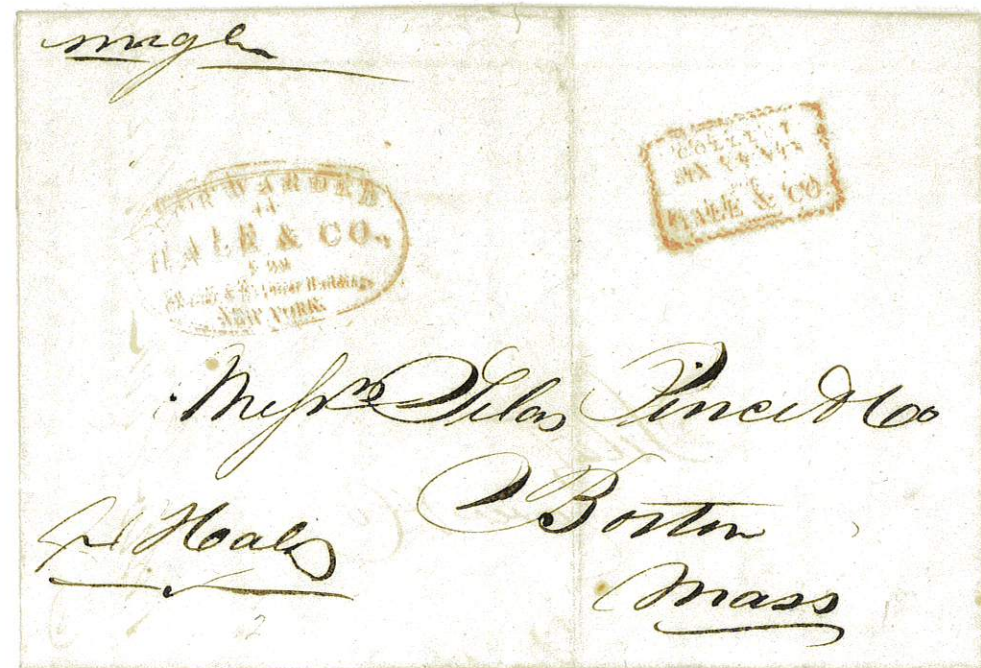 single
FORWARDED
HALE & CO.,
FROM
NEW YORK.
COLLECT
SIX CENTS
HALE & CO.
Messrs Silas Pierce & Co
Boston
Mass
pr Hale